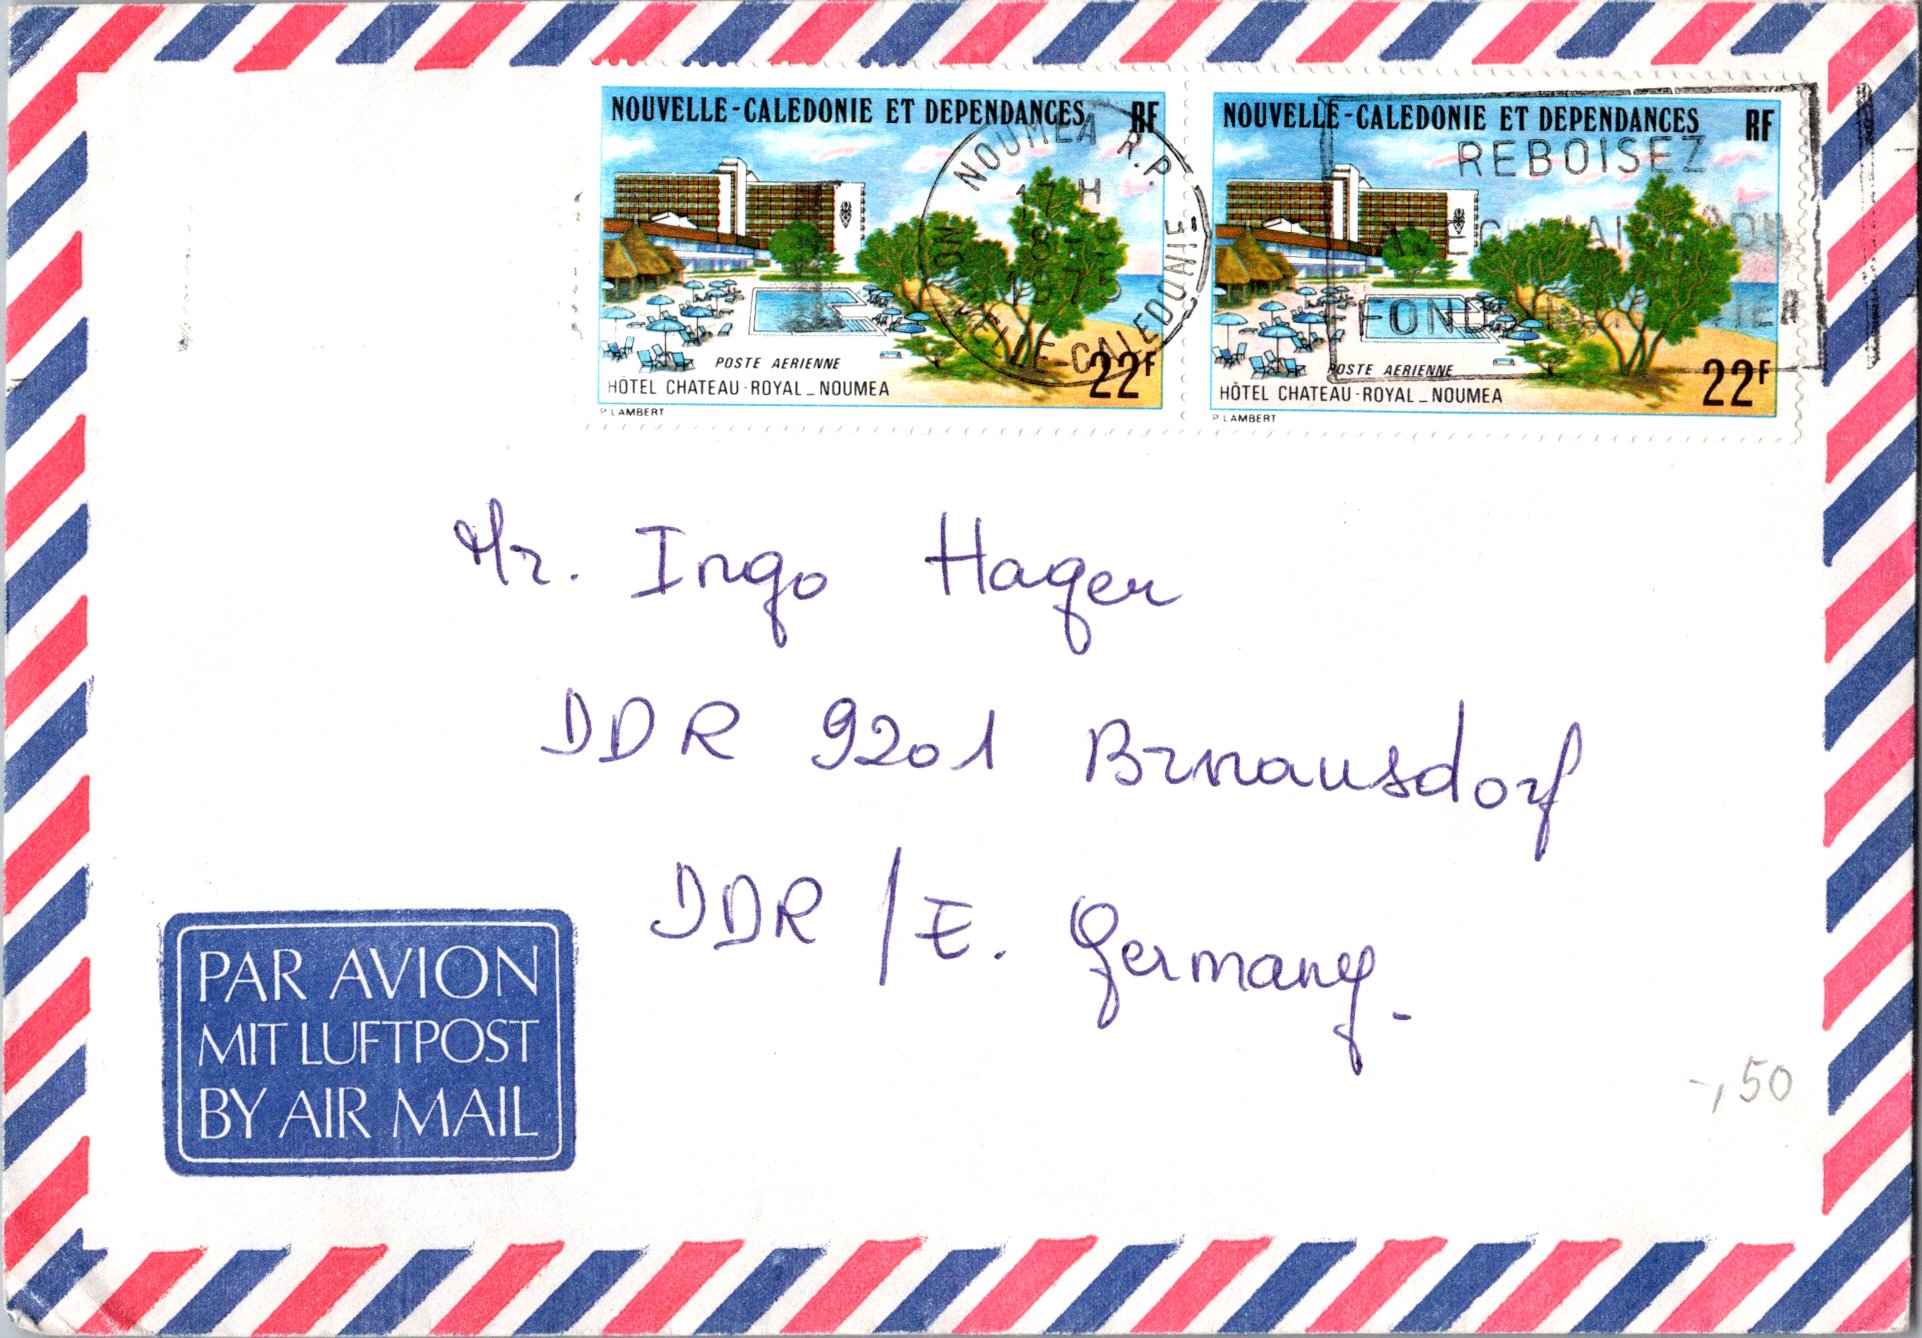 NOUVELLE-CALEDONIE ET DEPENDANCES RF
POSTE AERIENNE
HÔTEL CHATEAU-ROYAL_NOUMEA
22F
P LAMBERT
NOUVELLE-CALEDONIE ET DEPENDANCES RF
POSTE AERIENNE
HÔTEL CHATEAU-ROYAL_NOUMEA
22F
P LAMBERT
NOUMEA R.P.
17 H
CALEDONIE
REBOISEZ
Mr. Ingo Hager
DDR 9201 Brnausdorf
DDR / E. Germany.
PAR AVION
MIT LUFTPOST
BY AIR MAIL
-,50